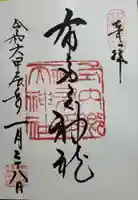 奉拝
布多天神社
令和六甲辰年一月二十八日